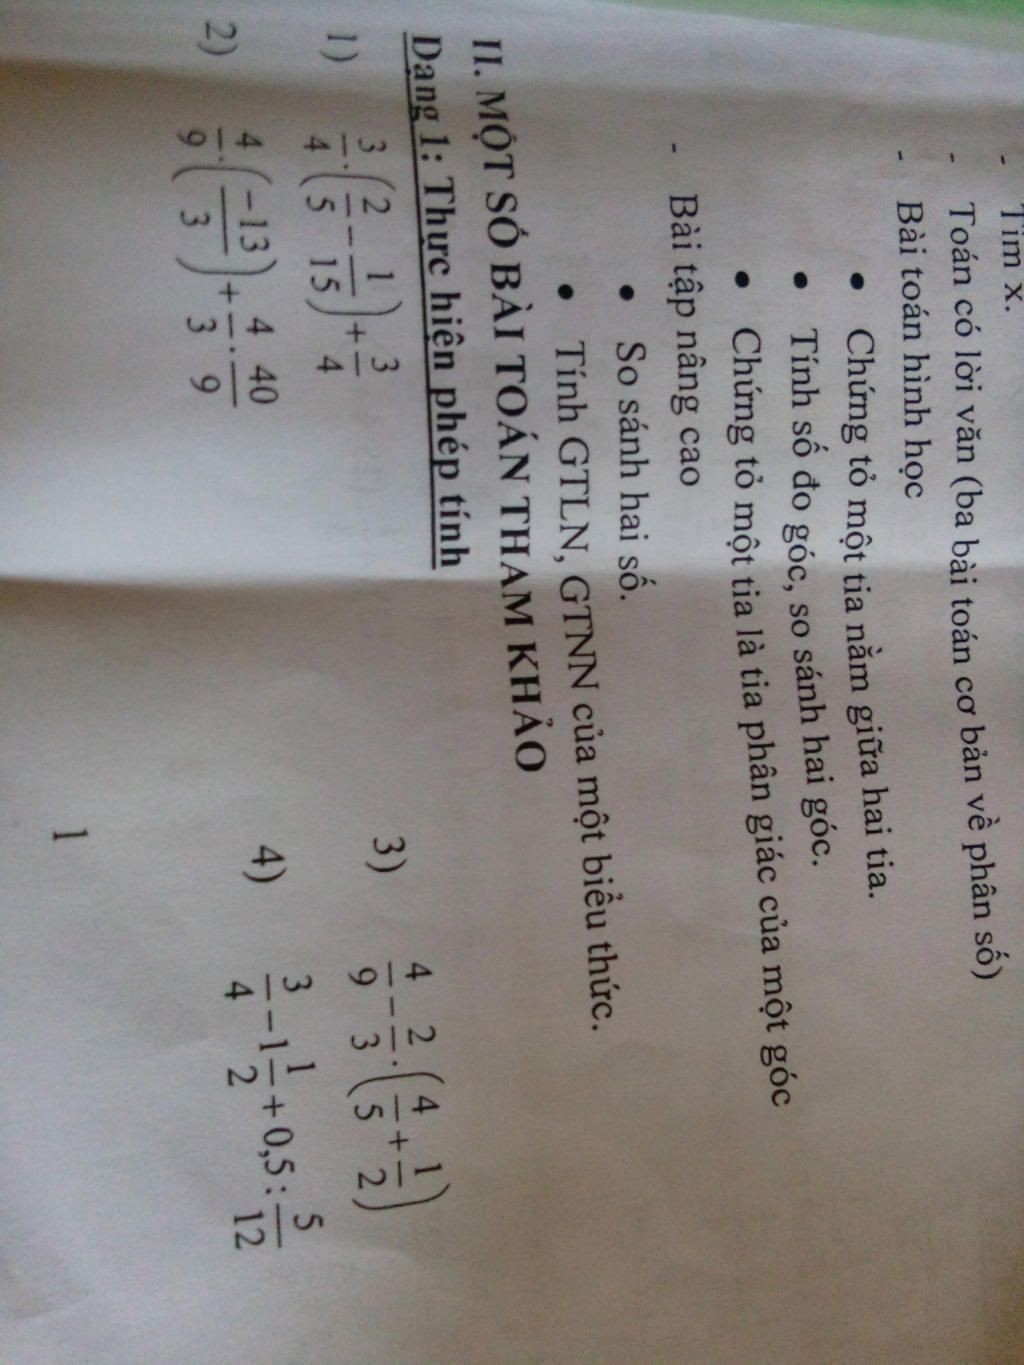 - Tìm x.
- Toán có lời văn (ba bài toán cơ bản về phân số)
- Bài toán hình học
• Chứng tỏ một tia nằm giữa hai tia.
• Tính số đo góc, so sánh hai góc.
• Chứng tỏ một tia là tia phân giác của một góc
- Bài tập nâng cao
• So sánh hai số.
• Tính GTLN, GTNN của một biểu thức.
II. MỘT SỐ BÀI TOÁN THAM KHẢO
Dạng 1: Thực hiện phép tính
1) 3/4 . (2/5 − 1/15) + 3/4
3) 4/9 − 2/3 . (4/5 + 1/2)
2) 4/9 . (−13/3) + 4/3 . 40/9
4) 3/4 − 1 1/2 + 0,5 : 5/12
1